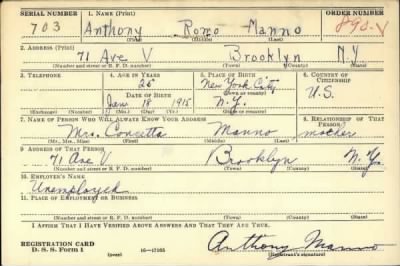 SERIAL NUMBER 1. NAME (Print) ORDER NUMBER
703 Anthony Romo Manno 890-V
(First) (Middle) (Last)
2. ADDRESS (Print)
71 Ave V Brooklyn N.Y
(Number and street or R. F. D. number) (Town) (County) (State)
3. TELEPHONE 4. AGE IN YEARS 5. PLACE OF BIRTH 6. COUNTRY OF CITIZENSHIP
25 New York City U.S.
DATE OF BIRTH (Town or county)
Jan 18 1915 N.Y.
(Exchange) (Number) (Mo.) (Day) (Yr.) (State or country)
7. NAME OF PERSON WHO WILL ALWAYS KNOW YOUR ADDRESS 8. RELATIONSHIP OF THAT PERSON
Mrs. Concetta Manno mother
(Mr., Mrs., Miss) (First) (Middle) (Last)
9. ADDRESS OF THAT PERSON
71 Ave V Brooklyn N.Y.
(Number and street or R. F. D. number) (Town) (County) (State)
10. EMPLOYER'S NAME
Unemployed
11. PLACE OF EMPLOYMENT OR BUSINESS
(Number and street or R. F. D. number) (Town) (County) (State)
I AFFIRM THAT I HAVE VERIFIED ABOVE ANSWERS AND THAT THEY ARE TRUE.
REGISTRATION CARD
D. S. S. Form 1 (over) 16—17105 Anthony Manno
(Registrant's signature)